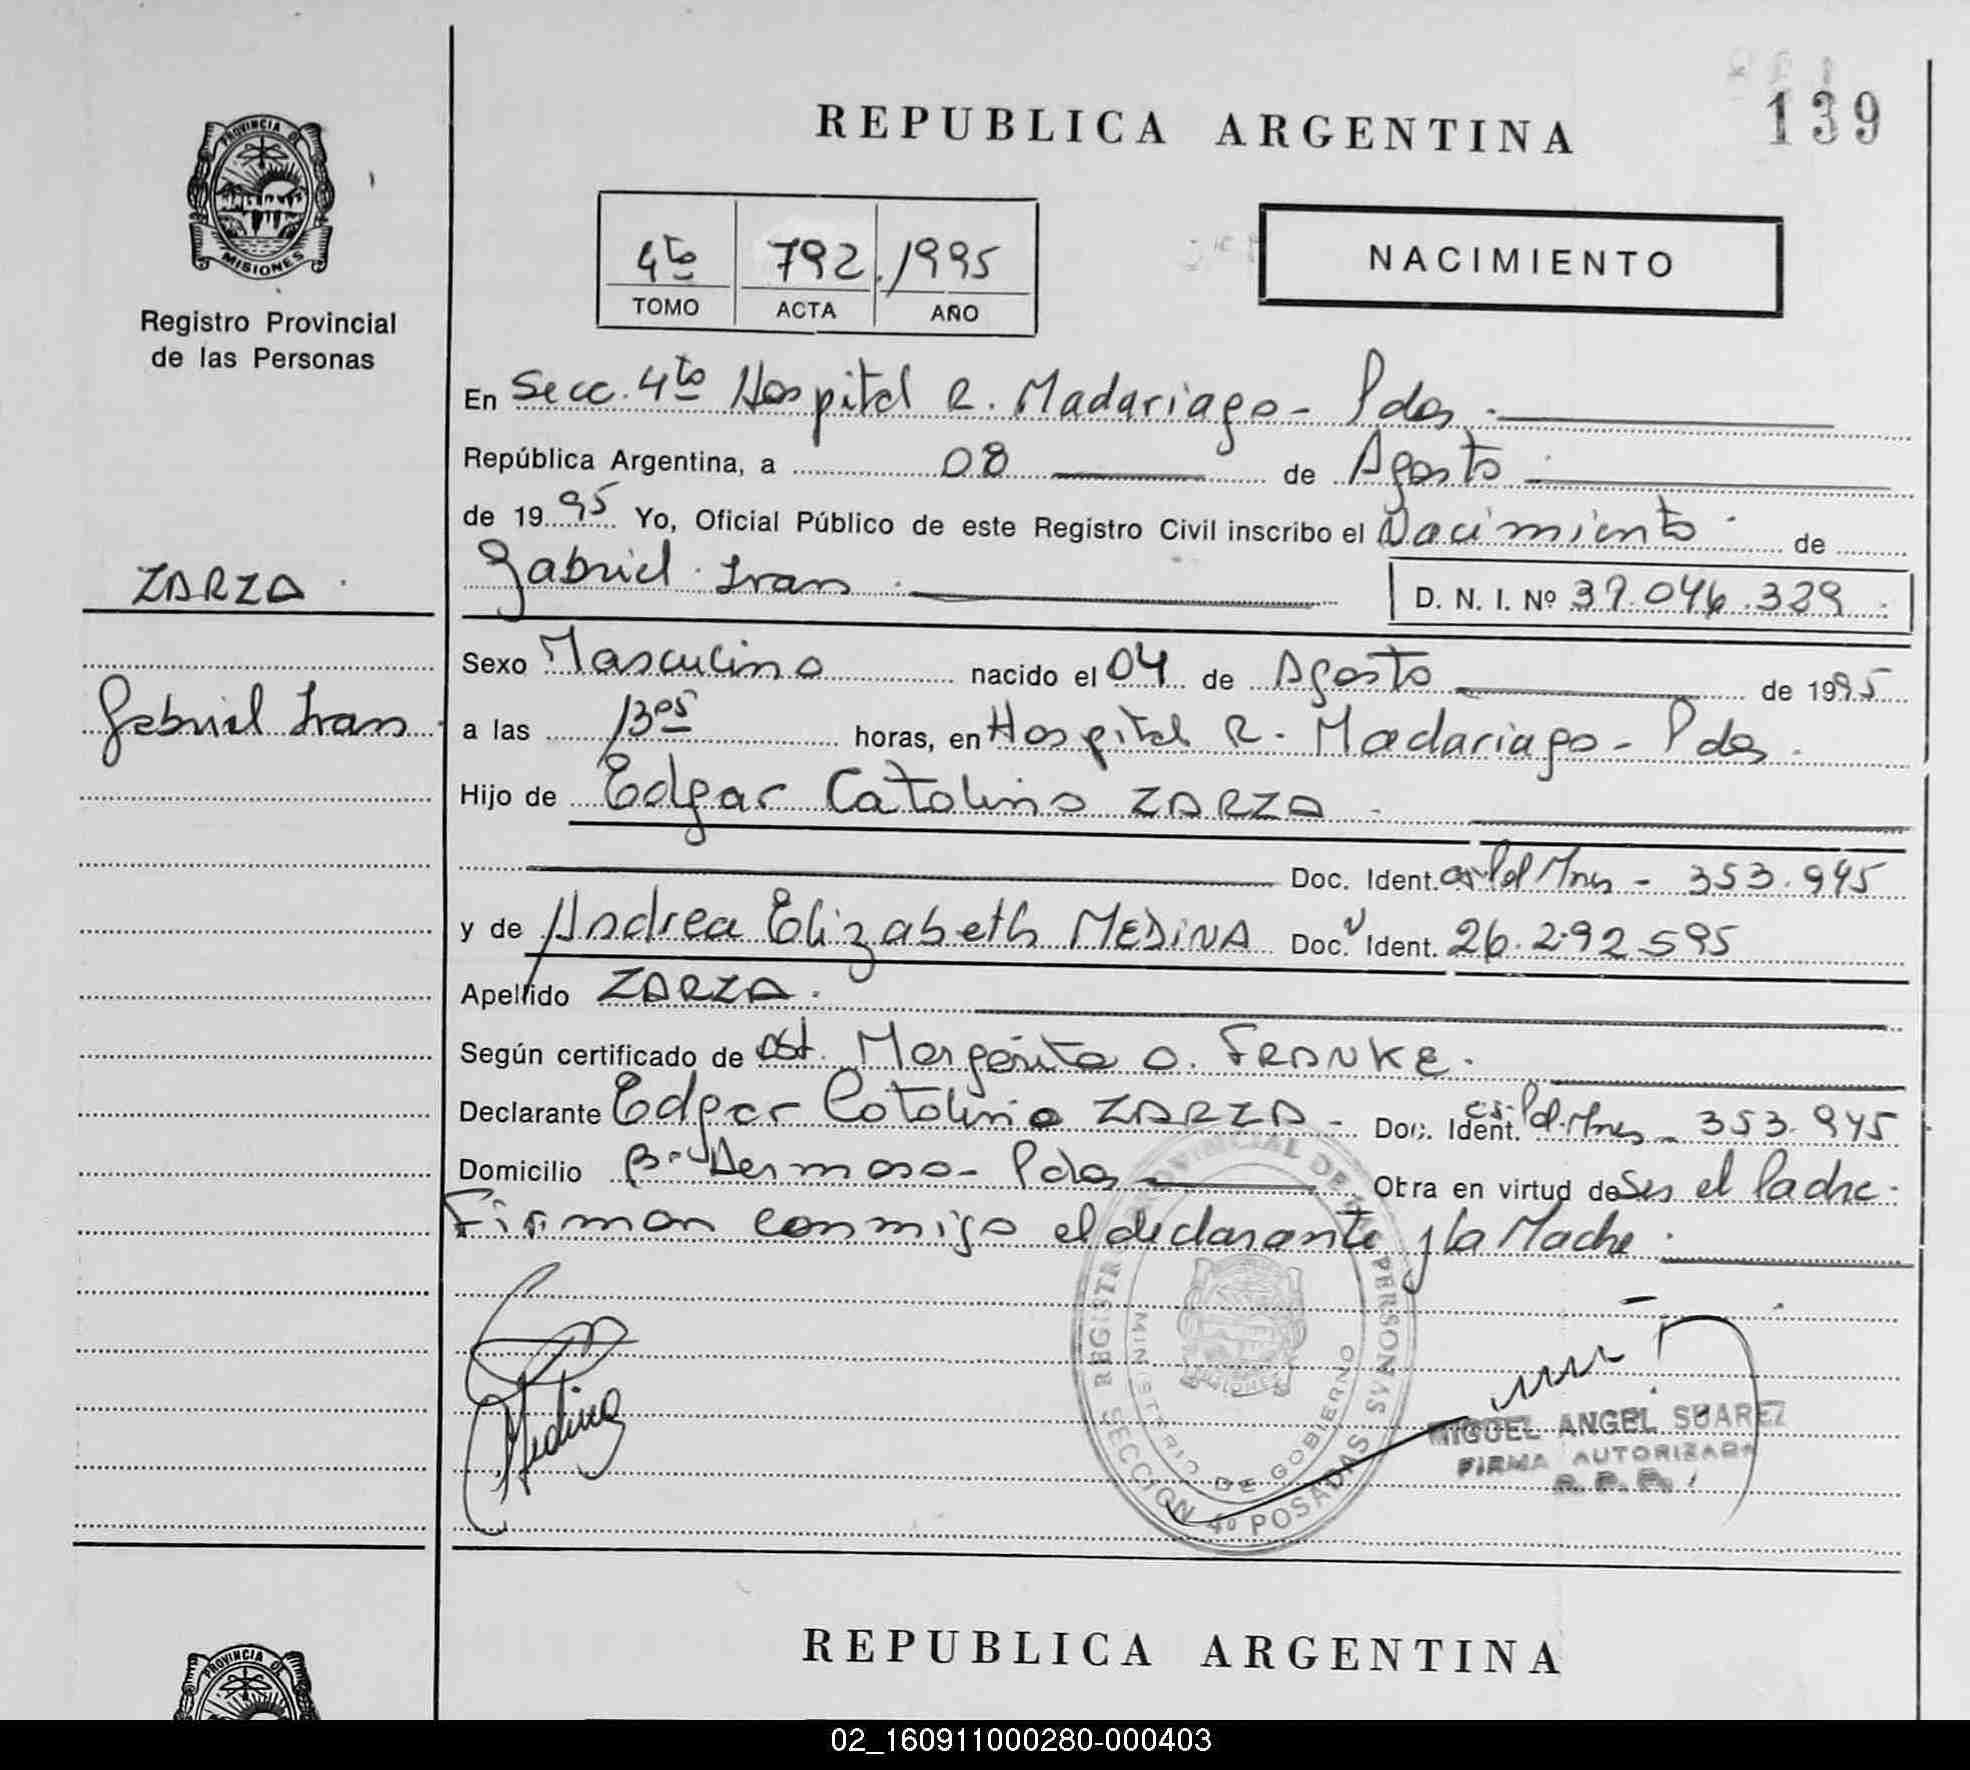 139
REPUBLICA ARGENTINA
PROVINCIA DE
MISIONES
Registro Provincial
de las Personas
4to 792 1995
TOMO ACTA AÑO
NACIMIENTO
En Secc. 4to Hospital R. Madariaga - Pdas.
República Argentina, a 08 de Agosto
de 1995 Yo, Oficial Público de este Registro Civil inscribo el Nacimiento de
Gabriel Ivan
D. N. I. Nº 39.046.329
ZARZA
Gabriel Ivan
Sexo Masculino nacido el 04 de Agosto de 1995
a las 13 05 horas, en Hospital R. Madariaga - Pdas.
Hijo de Edgar Catalino ZARZA
Doc. Ident. Mnes - 353.945
y de Andrea Elizabeth MEDINA Doc. Ident. 26.292.595
Apellido ZARZA.
Según certificado de Obst. Margarita O. FRANKE.
Declarante Edgar Catalino ZARZA - Doc. Ident. Mnes - 353.945
Domicilio Bº Hermoso - Pdas Otra en virtud de Ser el Padre.
Firman conmigo el declarante y la Madre.
Medina
REGISTRO PROVINCIAL DE LAS PERSONAS
MINISTERIO DE GOBIERNO
SECCION 4º POSADAS
MIGUEL ANGEL SUAREZ
FIRMA AUTORIZADA
R. P. P.
REPUBLICA ARGENTINA
PROVINCIA DE
02_160911000280-000403